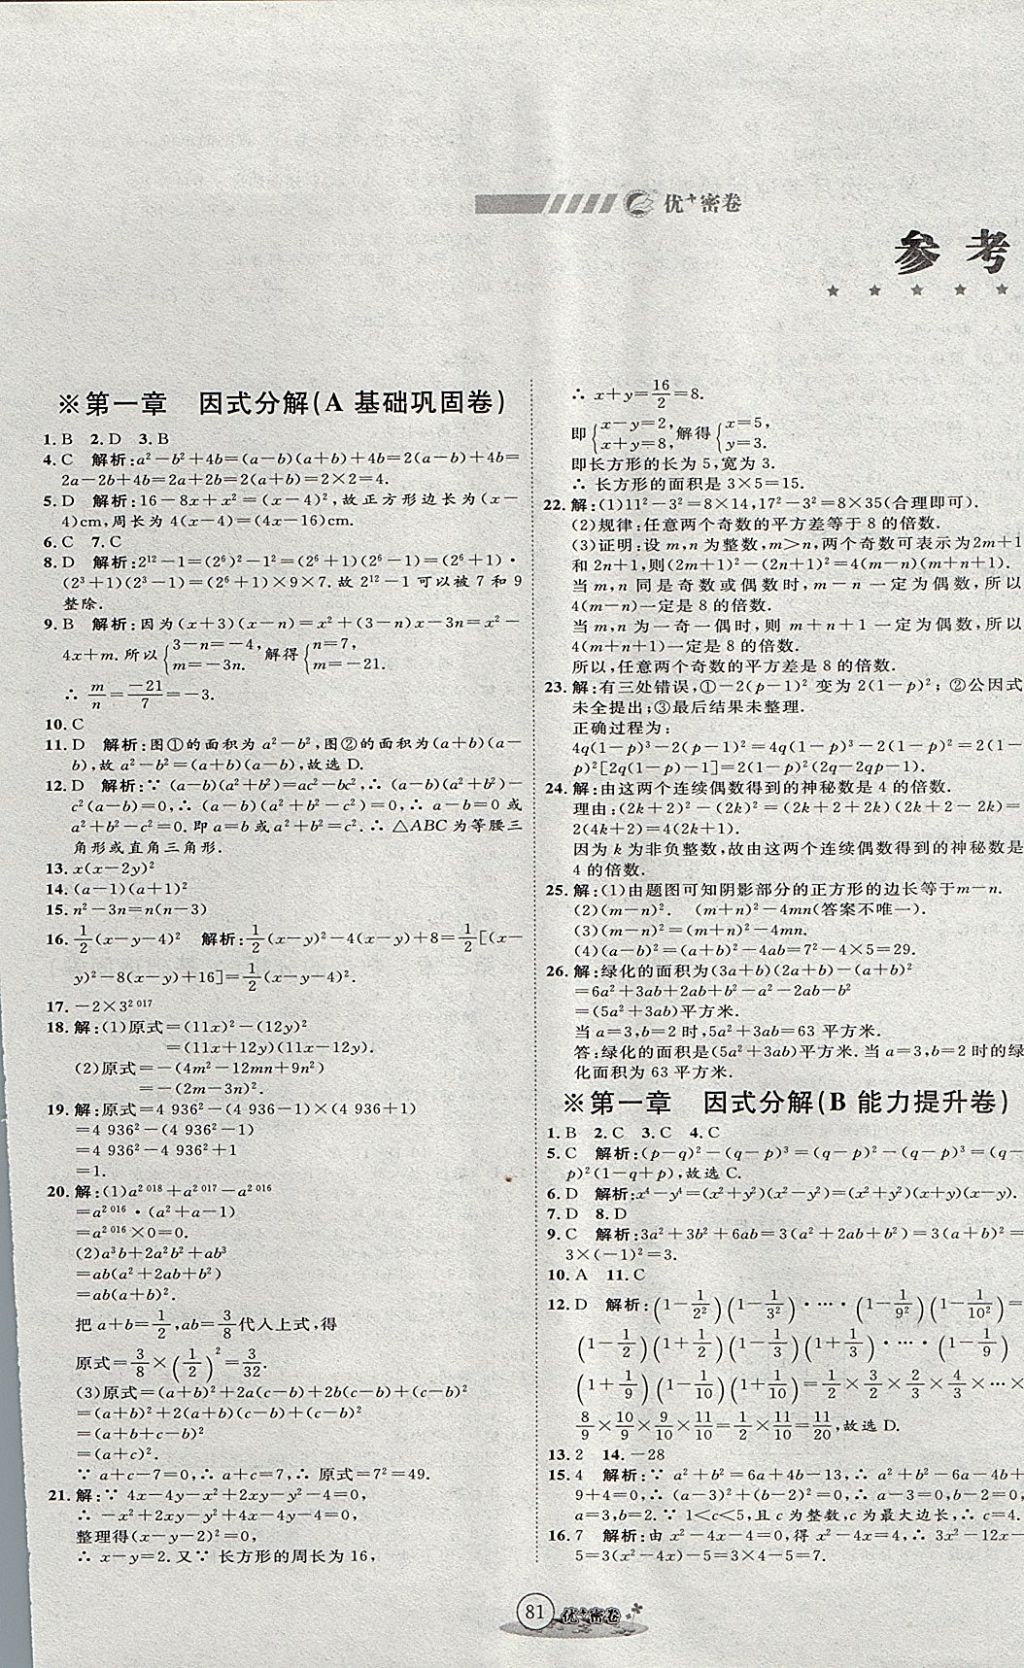 优+密卷
参 考
※第一章 因式分解(A 基础巩固卷)
1. B 2. D 3. B
4. C 解析:a²-b²+4b=(a-b)(a+b)+4b=2(a-b)+4b=
2a-2b+4b=2a+2b=2(a+b)=2×2=4.
5. D 解析:16-8x+x²=(x-4)²,故正方形边长为(x-
4)cm,周长为4(x-4)=(4x-16)cm.
6. C 7. C
8. D 解析:2¹²-1=(2⁶)²-1²=(2⁶+1)(2⁶-1)=(2⁶+1)·
(2³+1)(2³-1)=(2⁶+1)×9×7.故2¹²-1可以被7和9
整除.
9. B 解析:因为(x+3)(x-n)=x²+(3-n)x-3n=x²-
4x+m.所以{3-n=-4, m=-3n. 解得{n=7, m=-21.
∴ m/n=-21/7=-3.
10. C
11. D 解析:图①的面积为a²-b²,图②的面积为(a+b)(a-
b),故a²-b²=(a+b)(a-b),故选D.
12. D 解析:∵ (a-b)(a²+b²)=ac²-bc²,∴ (a-b)(a²+b²)-
c²(a-b)=0,∴ (a-b)(a²+b²-c²)=0,∴ a-b=0或
a²+b²-c²=0.即a=b或a²+b²=c².∴ △ABC为等腰三
角形或直角三角形.
13. x(x-2y)²
14. (a-1)(a+1)²
15. n²-3n=n(n-3)
16. 1/2(x-y-4)² 解析:1/2(x-y)²-4(x-y)+8=1/2[(x-
y)²-8(x-y)+16]=1/2(x-y-4)².
17. -2×3²⁰¹⁷
18. 解:(1)原式=(11x)²-(12y)²
=(11x+12y)(11x-12y).
(2)原式=-(4m²-12mn+9n²)
=-(2m-3n)².
19. 解:原式=4 936²-(4 936-1)×(4 936+1)
=4 936²-(4 936²-1)
=4 936²-4 936²+1
=1.
20. 解:(1)a²⁰¹⁸+a²⁰¹⁷-a²⁰¹⁶
=a²⁰¹⁶·(a²+a-1)
=a²⁰¹⁶×0=0.
(2)a³b+2a²b²+ab³
=ab(a²+2ab+b²)
=ab(a+b)².
把a+b=1/2,ab=3/8代人上式,得
原式=3/8×(1/2)²=3/32.
(3)原式=(a+b)²+2a(c-b)+2b(c-b)+(c-b)²
=(a+b)²+2(a+b)(c-b)+(c-b)²
=(a+b+c-b)²
=(a+c)².
∵ a+c-7=0,∴ a+c=7,∴ 原式=7²=49.
21. 解:∵ 4x-4y-x²+2xy-y²=0,
∴ -x²+2xy-y²+4x-4y-4=0,
整理得(x-y-2)²=0,
∴ x-y=2.又∵ 长方形的周长为16,
∴ x+y=16/2=8.
即{x-y=2, x+y=8, 解得{x=5, y=3.
即长方形的长为5,宽为3.
∴ 长方形的面积是3×5=15.
22. 解:(1)11²-3²=8×14,17²-3²=8×35(合理即可).
(2)规律:任意两个奇数的平方差等于8的倍数.
(3)证明:设m,n为整数,m>n,两个奇数可表示为2m+1
和2n+1,则(2m+1)²-(2n+1)²=4(m-n)(m+n+1).
当m,n同是奇数或偶数时,m-n一定为偶数,所以
4(m-n)一定是8的倍数.
当m,n为一奇一偶时,则m+n+1一定为偶数,所以
4(m+n+1)一定是8的倍数.
所以,任意两个奇数的平方差是8的倍数.
23. 解:有三处错误,①-2(p-1)²变为2(1-p)²;②公因式
未全提出;③最后结果未整理.
正确过程为:
4q(1-p)³-2(p-1)²=4q(1-p)³-2(1-p)²=2(1-
p)²[2q(1-p)-1]=2(1-p)²(2q-2qp-1).
24. 解:由这两个连续偶数得到的神秘数是4的倍数.
理由:(2k+2)²-(2k)²=(2k+2+2k)(2k+2-2k)=
2(4k+2)=4(2k+1).
因为k为非负整数,故由这两个连续偶数得到的神秘数是
4的倍数.
25. 解:(1)由题图可知阴影部分的正方形的边长等于m-n.
(2)(m-n)². (m+n)²-4mn(答案不唯一).
(3)(m-n)²=(m+n)²-4mn.
(4)(a-b)²=(a+b)²-4ab=7²-4×5=29.
26. 解:绿化的面积为(3a+b)(2a+b)-(a+b)²
=6a²+3ab+2ab+b²-a²-2ab-b²
=(5a²+3ab)平方米.
当a=3,b=2时,5a²+3ab=63平方米.
答:绿化的面积是(5a²+3ab)平方米.当a=3,b=2时的绿
化面积为63平方米.
※第一章 因式分解(B 能力提升卷)
1. B 2. C 3. C 4. C
5. C 解析:(p-q)²-(q-p)³=(q-p)²-(q-p)³=(q-
p)²(1-q+p),故选C.
6. D 解析:x⁴-y⁴=(x²+y²)(x²-y²)=(x²+y²)(x+y)(x-y).
7. D 8. D
9. C 解析:3a²+3b²+6ab=3(a²+2ab+b²)=3(a+b)²=
3×(-1)²=3.
10. A 11. C
12. D 解析:(1-1/2²)(1-1/3²)·…·(1-1/9²)(1-1/10²)=
(1-1/2)(1+1/2)(1-1/3)(1+1/3)·…·(1-1/9)
(1+1/9)(1-1/10)(1+1/10)=1/2×3/2×2/3×…×
8/9×10/9×9/10×11/10=1/2×11/10=11/20,故选D.
13. 2 14. -28
15. 4 解析:∵ a²+b²=6a+4b-13,∴ a²+b²-6a-4b+
9+4=0,∴ (a-3)²+(b-2)²=0,∴ a-3=0,b-2=0,
a=3,b=2.∵ 1<c<5,且c为整数,c为最大边长,∴ c=4.
16. 7 解析:由x²-4x-4=0,得x²-4x=4,∴ 3x²-12x-
5=3(x²-4x)-5=12-5=7.
81 优+密卷